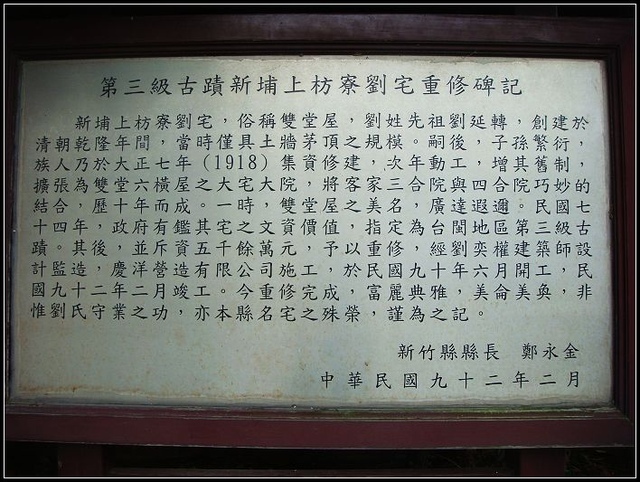 第三級古蹟新埔上枋寮劉宅重修碑記
新埔上枋寮劉宅，俗稱雙堂屋，劉姓先祖劉延轉，創建於
清朝乾隆年間，當時僅具土牆茅頂之規模。嗣後，子孫繁衍，
族人乃於大正七年（1918）集資修建，次年動工，增其舊制，
擴張為雙堂六橫屋之大宅大院，將客家三合院與四合院巧妙的
結合，歷十年而成。一時，雙堂屋之美名，廣達遐邇。民國七
十四年，政府有鑑其宅之文資價值，指定為台閩地區第三級古
蹟。其後，並斥資五千餘萬元，予以重修，經劉奕權建築師設
計監造，慶洋營造有限公司施工，於民國九十年六月開工，民
國九十二年二月竣工。今重修完成，富麗典雅，美侖美奐，非
惟劉氏守業之功，亦本縣名宅之殊榮，謹為之記。
新竹縣縣長 鄭永金
中華民國九十二年二月